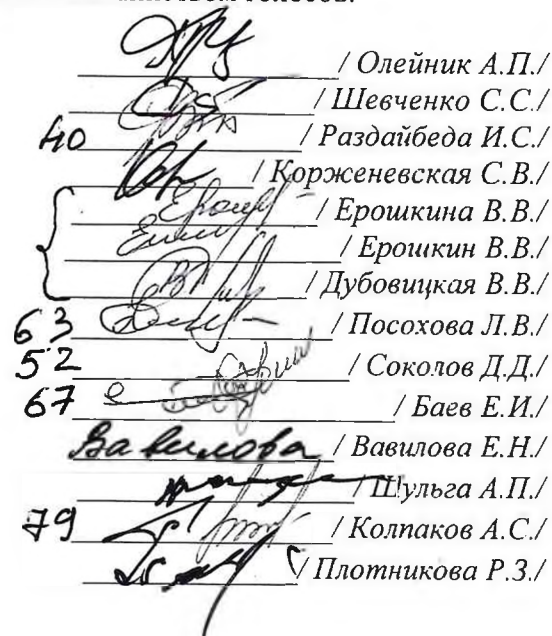 / Олейник А.П./
/ Шевченко С.С./
40 / Раздайбеда И.С./
/ Корженевская С.В./
/ Ерошкина В.В./
/ Ерошкин В.В./
/ Дубовицкая В.В./
63 / Посохова Л.В./
52 / Соколов Д.Д./
67 / Баев Е.И./
Вавилова / Вавилова Е.Н./
/ Шульга А.П./
79 / Колпаков А.С./
/ Плотникова Р.З./